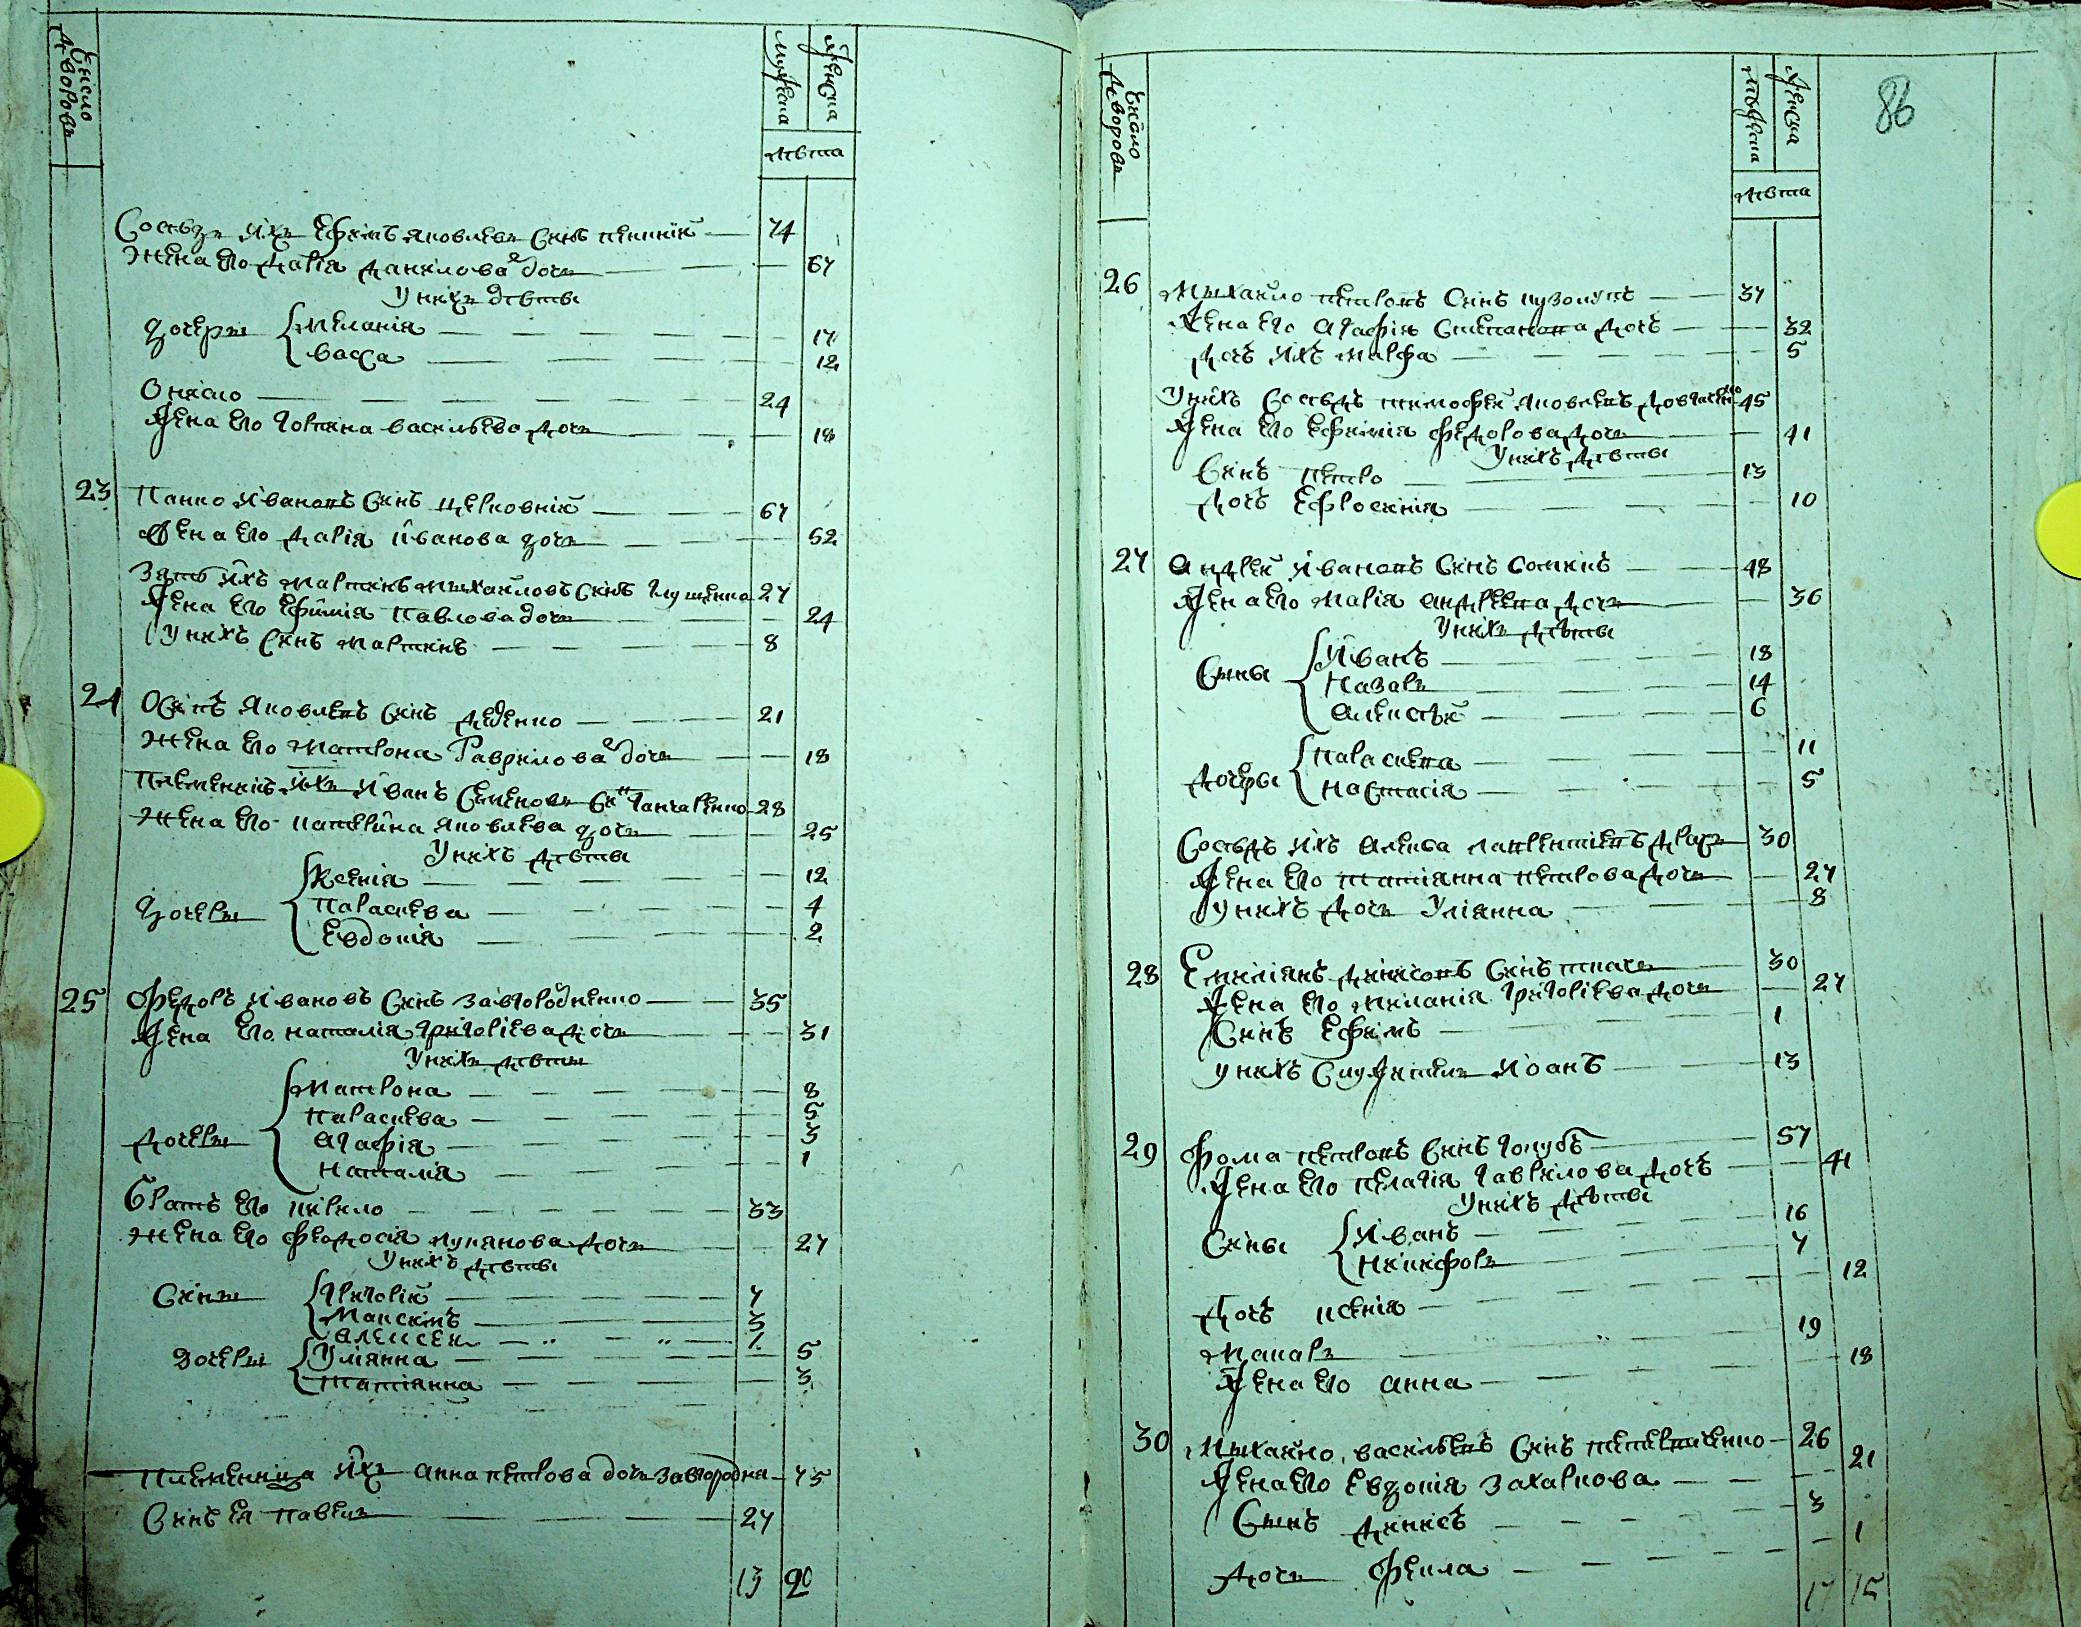 Число дворовъ
мужеска
женска
лѣта
Сосѣдъ ихъ Ефимъ Яковлевъ Синъ 74
жена его Дарія Данилова дочь 67
У нихъ дѣти
дочери Меланія 17
васса 12
Ониско 24
жена его васильева дочь 18
23 Панко Ивановъ Синъ Церковній 67
жена его Дарія Иванова дочь 52
Зять ихъ Мартинъ Михайловъ Синъ Глущенко 27
жена его Ефимія Павлова дочь 24
У нихъ Синъ Мартинъ 8
24 Осипъ Яковлевъ Синъ Деденко 21
жена его Матрона Гаврилова дочь 18
Племенникъ ихъ Иванъ Семеновъ Синъ Гончаренко 28
жена его Катерина Яковлева дочь 25
У нихъ дѣти
дочери Ксенія 12
Параскева 4
Евдокія 2
25 Федоръ Ивановъ Синъ Завгородненко 35
жена его Наталія Григоріева дочь 31
У нихъ дѣти
дочери Матрона 8
Параскева 5
Агафія 3
Наталія 1
Братъ его Кирило 33
жена его Феодосія Лукянова дочь 27
У нихъ дѣти
Сини Григорій 7
Максимъ 3
Алексей 1
дочери Уліянна 5
Татіянна 3
Племенница ихъ Анна Петрова дочь Завгородна 45
Синъ ея Павелъ 27
13 20
86
Число дворовъ
мужеска
женска
лѣта
26 Михайло Петровъ Синъ 37
жена его Агафія Степанова дочь 32
дочь ихъ Марфа 5
У нихъ Сосѣдъ Тимофей Яковлевъ 45
жена его Ефимія Федорова дочь 41
У нихъ дѣти
Синъ Петро 13
дочь Ефросинія 10
27 Андрей Ивановъ Синъ Сомкинъ 48
жена его Марія Андреева дочь 36
У нихъ дѣти
Сыны Иванъ 18
Назаръ 14
Алексѣй 6
дочеры Параскева 11
Настасія 5
Сосѣдъ ихъ Алекса Лаврентіевъ 30
жена его Татіянна Петрова дочь 27
У нихъ дочь Уліянна 8
28 Емиліянъ Денисовъ Синъ Ткачъ 30
жена его Миланія Григоріева дочь 27
Синъ Ефимъ 1
у нихъ Служитель Иоанъ 13
29 Фома Петровъ Синъ Голубъ 57
жена его Пелагія Гаврилова дочь 41
У нихъ дѣти
Сини Иванъ 16
Никифоръ 7
дочь Ксенія 12
Макаръ 19
жена его Анна 18
30 Михайло васильевъ Синъ 26
жена его Евдокія Захаркова 21
Сынъ Денисъ 3
дочь Фекла 1
17 15